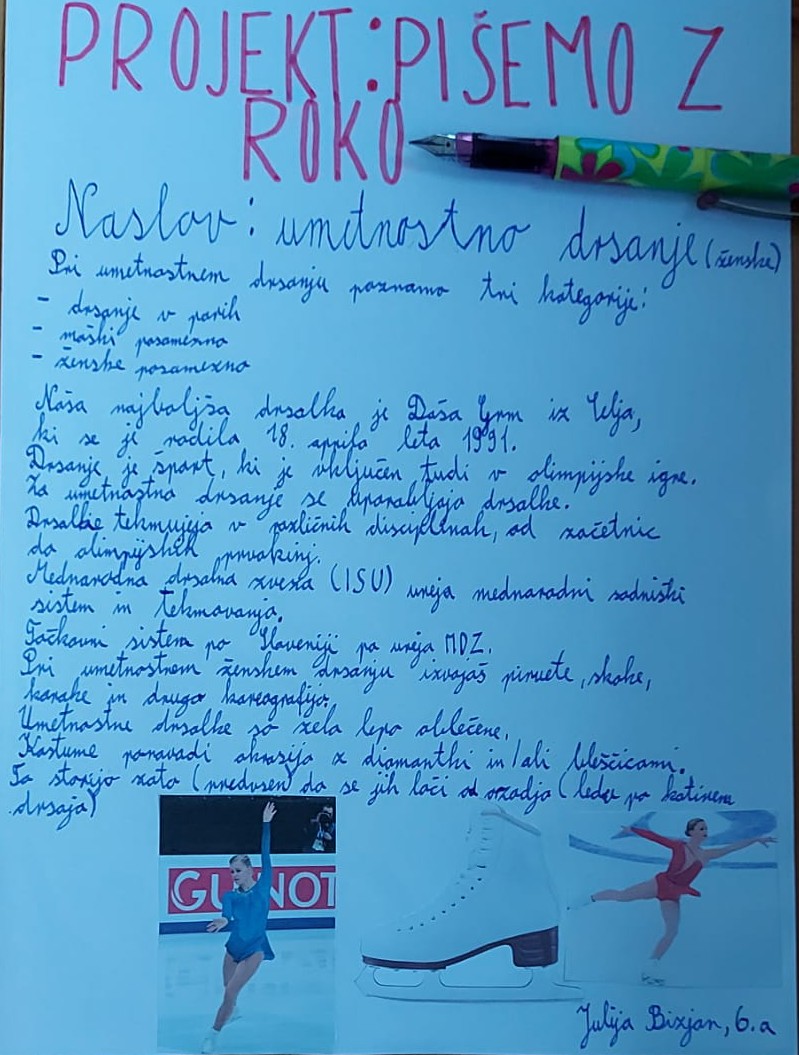 PROJEKT: PIŠEMO Z
ROKO
Naslov: umetnostno drsanje (ženske)
Pri umetnostnem drsanju poznamo tri kategorije:
- drsanje v parih
- moški posamezno
- ženske posamezno
Naša najboljša drsalka je Daša Grm iz Celja,
ki se je rodila 18. aprila leta 1991.
Drsanje je šport, ki je vključen tudi v olimpijske igre.
Za umetnostno drsanje se uporabljajo drsalke.
Drsalke tekmujejo v različnih disciplinah, od začetnic
do olimpijskih prvakinj.
Mednarodna drsalna zveza (ISU) ureja mednarodni sodniški
sistem in tekmovanja.
Točkovni sistem po Sloveniji pa ureja MDZ.
Pri umetnostnem ženskem drsanju izvajaš piruete, skoke,
korake in drugo koreografijo.
Umetnostne drsalke so zelo lepo oblečene.
Kostume ponavadi okrasijo z diamantki in/ali bleščicami.
To storijo zato (predvsem) da se jih loči od ozadja (ledu po katerem
drsajo)
GU NOT
Julija Bizjan, 6.a